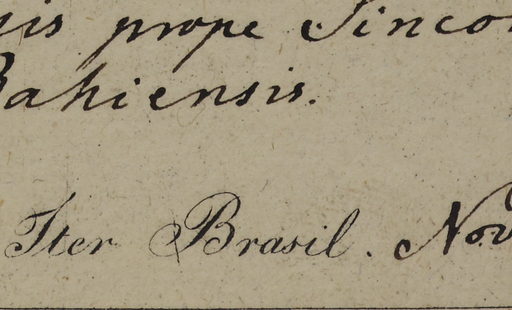 is prope Sinco
Bahiensis.
Iter Brasil. Nov